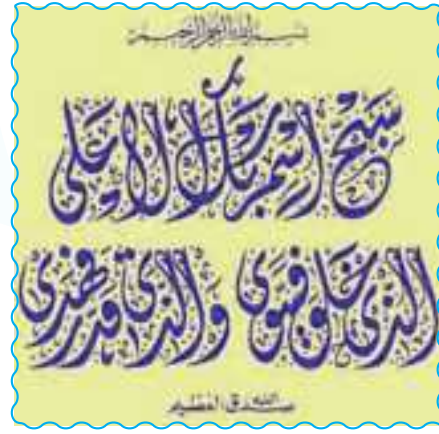 بسم الله الرحمن الرحيم
سبح اسم ربك الأعلى
الذي خلق فسوى والذي قدر فهدى
صدق الله العظيم